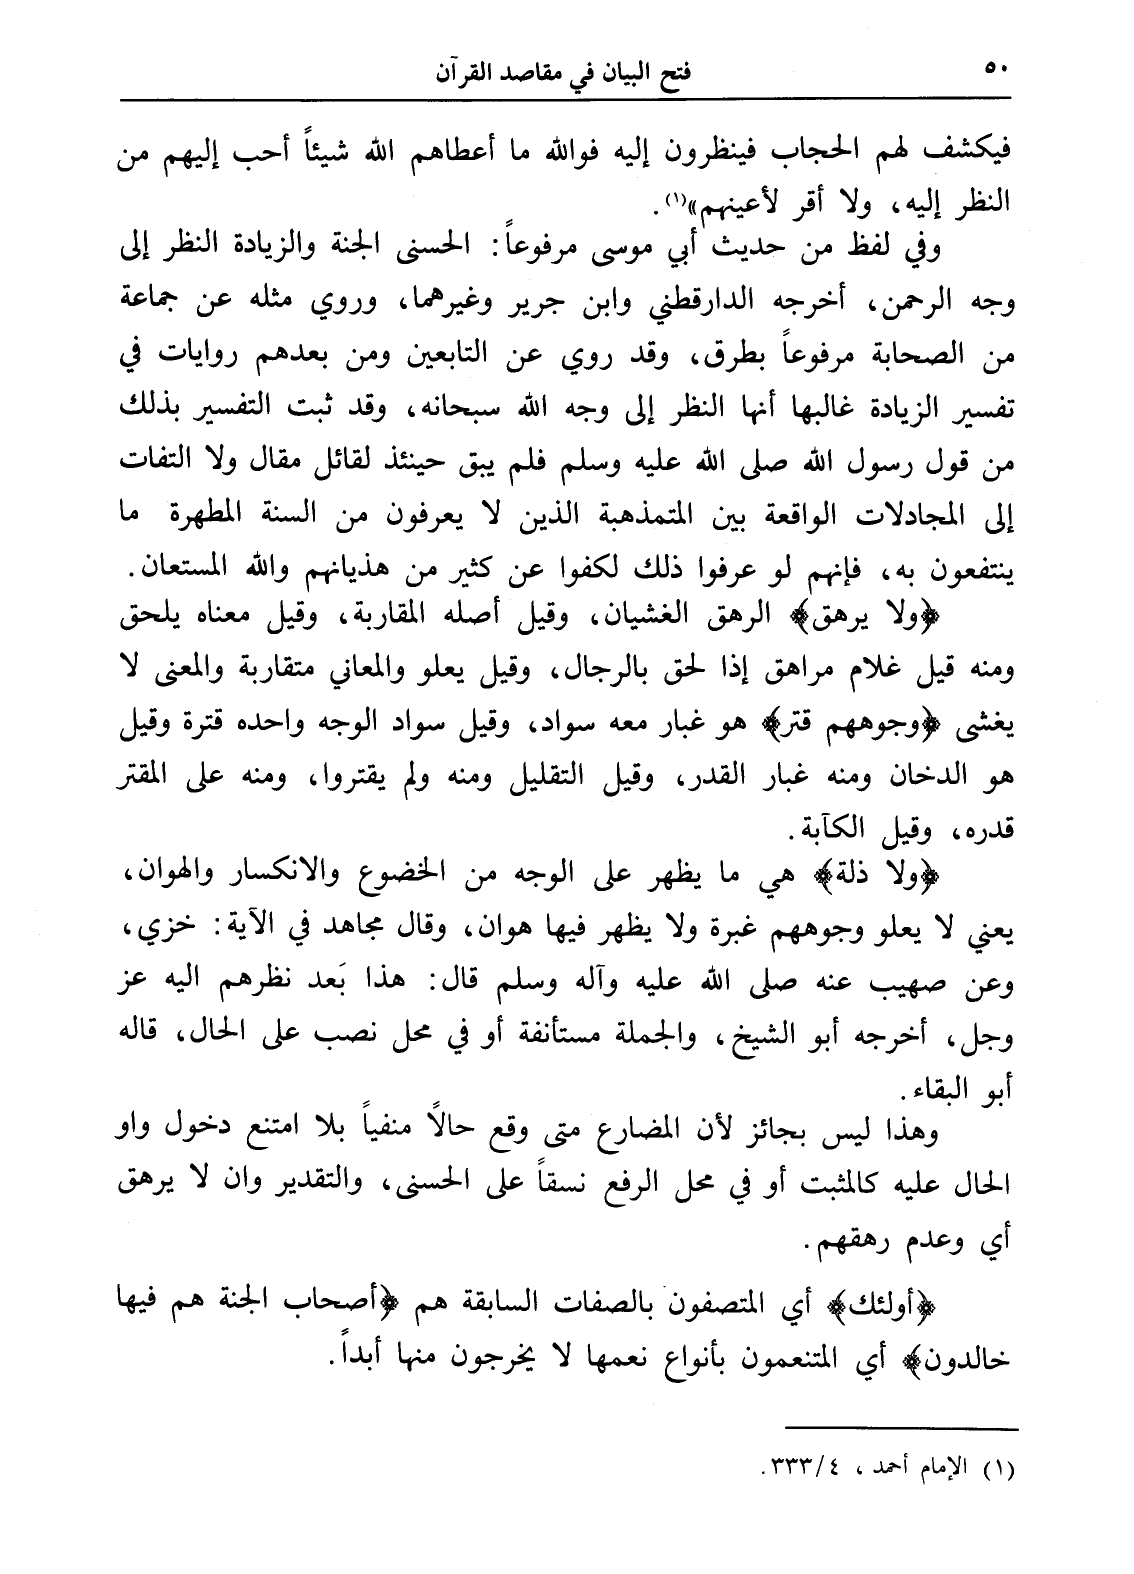 ٥٠
فتح البيان في مقاصد القرآن
فيكشف لهم الحجاب فينظرون إليه فوالله ما أعطاهم الله شيئاً أحب إليهم من
النظر إليه، ولا أقر لأعينهم»(١).
وفي لفظ من حديث أبي موسى مرفوعاً: الحسنى الجنة والزيادة النظر إلى
وجه الرحمن، أخرجه الدارقطني وابن جرير وغيرهما، وروي مثله عن جماعة
من الصحابة مرفوعاً بطرق، وقد روي عن التابعين ومن بعدهم روايات في
تفسير الزيادة غالبها أنها النظر إلى وجه الله سبحانه، وقد ثبت التفسير بذلك
من قول رسول الله صلى الله عليه وسلم فلم يبق حينئذ لقائل مقال ولا التفات
إلى المجادلات الواقعة بين المتمذهبة الذين لا يعرفون من السنة المطهرة ما
ينتفعون به، فإنهم لو عرفوا ذلك لكفوا عن كثير من هذيانهم والله المستعان.
﴿ولا يرهق﴾ الرهق الغشيان، وقيل أصله المقاربة، وقيل معناه يلحق
ومنه قيل غلام مراهق إذا لحق بالرجال، وقيل يعلو والمعاني متقاربة والمعنى لا
يغشى ﴿وجوههم قتر﴾ هو غبار معه سواد، وقيل سواد الوجه واحده قترة وقيل
هو الدخان ومنه غبار القدر، وقيل التقليل ومنه ولم يقتروا، ومنه على المقتر
قدره، وقيل الكآبة.
﴿ولا ذلة﴾ هي ما يظهر على الوجه من الخضوع والانكسار والهوان،
يعني لا يعلو وجوههم غبرة ولا يظهر فيها هوان، وقال مجاهد في الآية: خزي،
وعن صهيب عنه صلى الله عليه وآله وسلم قال: هذا بَعد نظرهم اليه عز
وجل، أخرجه أبو الشيخ، والجملة مستأنفة أو في محل نصب على الحال، قاله
أبو البقاء.
وهذا ليس بجائز لأن المضارع متى وقع حالاً منفياً بلا امتنع دخول واو
الحال عليه كالمثبت أو في محل الرفع نسقاً على الحسنى، والتقدير وان لا يرهق
أي وعدم رهقهم.
﴿أولئك﴾ أي المتصفون بالصفات السابقة هم ﴿أصحاب الجنة هم فيها
خالدون﴾ أي المتنعمون بأنواع نعمها لا يخرجون منها أبداً.
(١) الإمام أحمد ، ٣٣٣/٤.